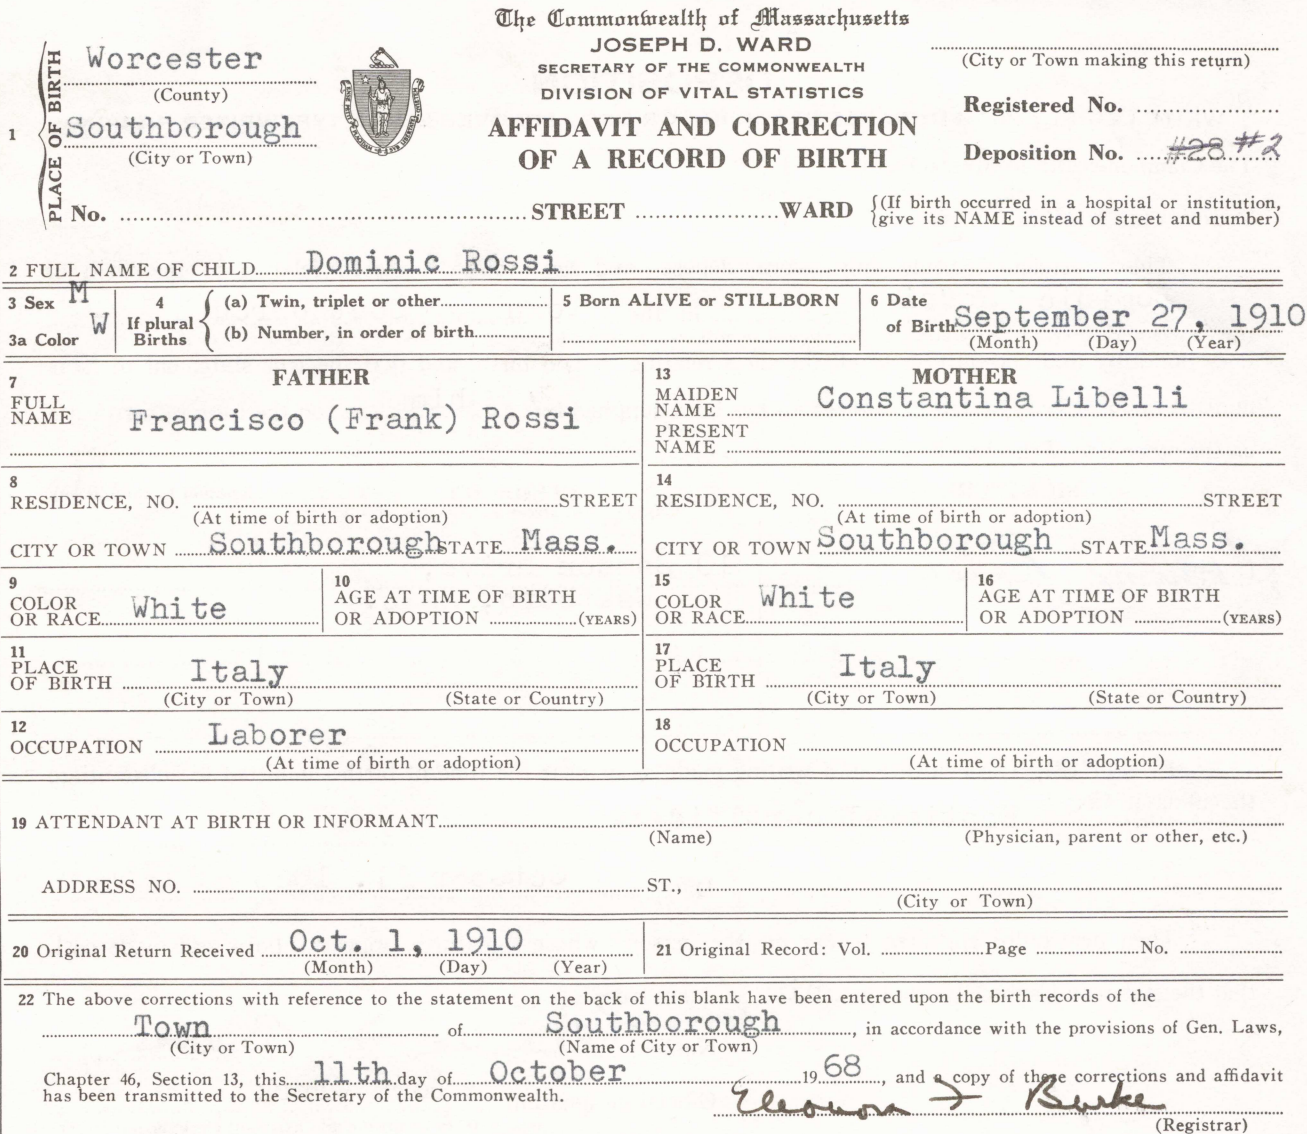 The Commonwealth of Massachusetts
JOSEPH D. WARD
SECRETARY OF THE COMMONWEALTH
DIVISION OF VITAL STATISTICS
AFFIDAVIT AND CORRECTION
OF A RECORD OF BIRTH
(City or Town making this return)
Registered No.
Deposition No. #28 #2
1 PLACE OF BIRTH
Worcester
(County)
Southborough
(City or Town)
No. STREET WARD {(If birth occurred in a hospital or institution,
give its NAME instead of street and number)
2 FULL NAME OF CHILD Dominic Rossi
3 Sex M
3a Color W
4 If plural Births
(a) Twin, triplet or other
(b) Number, in order of birth
5 Born ALIVE or STILLBORN
6 Date of Birth September 27, 1910
(Month) (Day) (Year)
FATHER
7 FULL NAME Francisco (Frank) Rossi
MOTHER
13 MAIDEN NAME Constantina Libelli
PRESENT NAME
8
RESIDENCE, NO. STREET
(At time of birth or adoption)
CITY OR TOWN Southborough STATE Mass.
14
RESIDENCE, NO. STREET
(At time of birth or adoption)
CITY OR TOWN Southborough STATE Mass.
9 COLOR OR RACE White
10 AGE AT TIME OF BIRTH
OR ADOPTION (YEARS)
15 COLOR OR RACE White
16 AGE AT TIME OF BIRTH
OR ADOPTION (YEARS)
11 PLACE OF BIRTH Italy
(City or Town) (State or Country)
17 PLACE OF BIRTH Italy
(City or Town) (State or Country)
12
OCCUPATION Laborer
(At time of birth or adoption)
18
OCCUPATION
(At time of birth or adoption)
19 ATTENDANT AT BIRTH OR INFORMANT
(Name) (Physician, parent or other, etc.)
ADDRESS NO. ST.,
(City or Town)
20 Original Return Received Oct. 1, 1910
(Month) (Day) (Year)
21 Original Record: Vol. Page No.
22 The above corrections with reference to the statement on the back of this blank have been entered upon the birth records of the
Town of Southborough, in accordance with the provisions of Gen. Laws,
(City or Town) (Name of City or Town)
Chapter 46, Section 13, this 11th day of October 1968, and a copy of these corrections and affidavit
has been transmitted to the Secretary of the Commonwealth.
Eleonora F Burke
(Registrar)